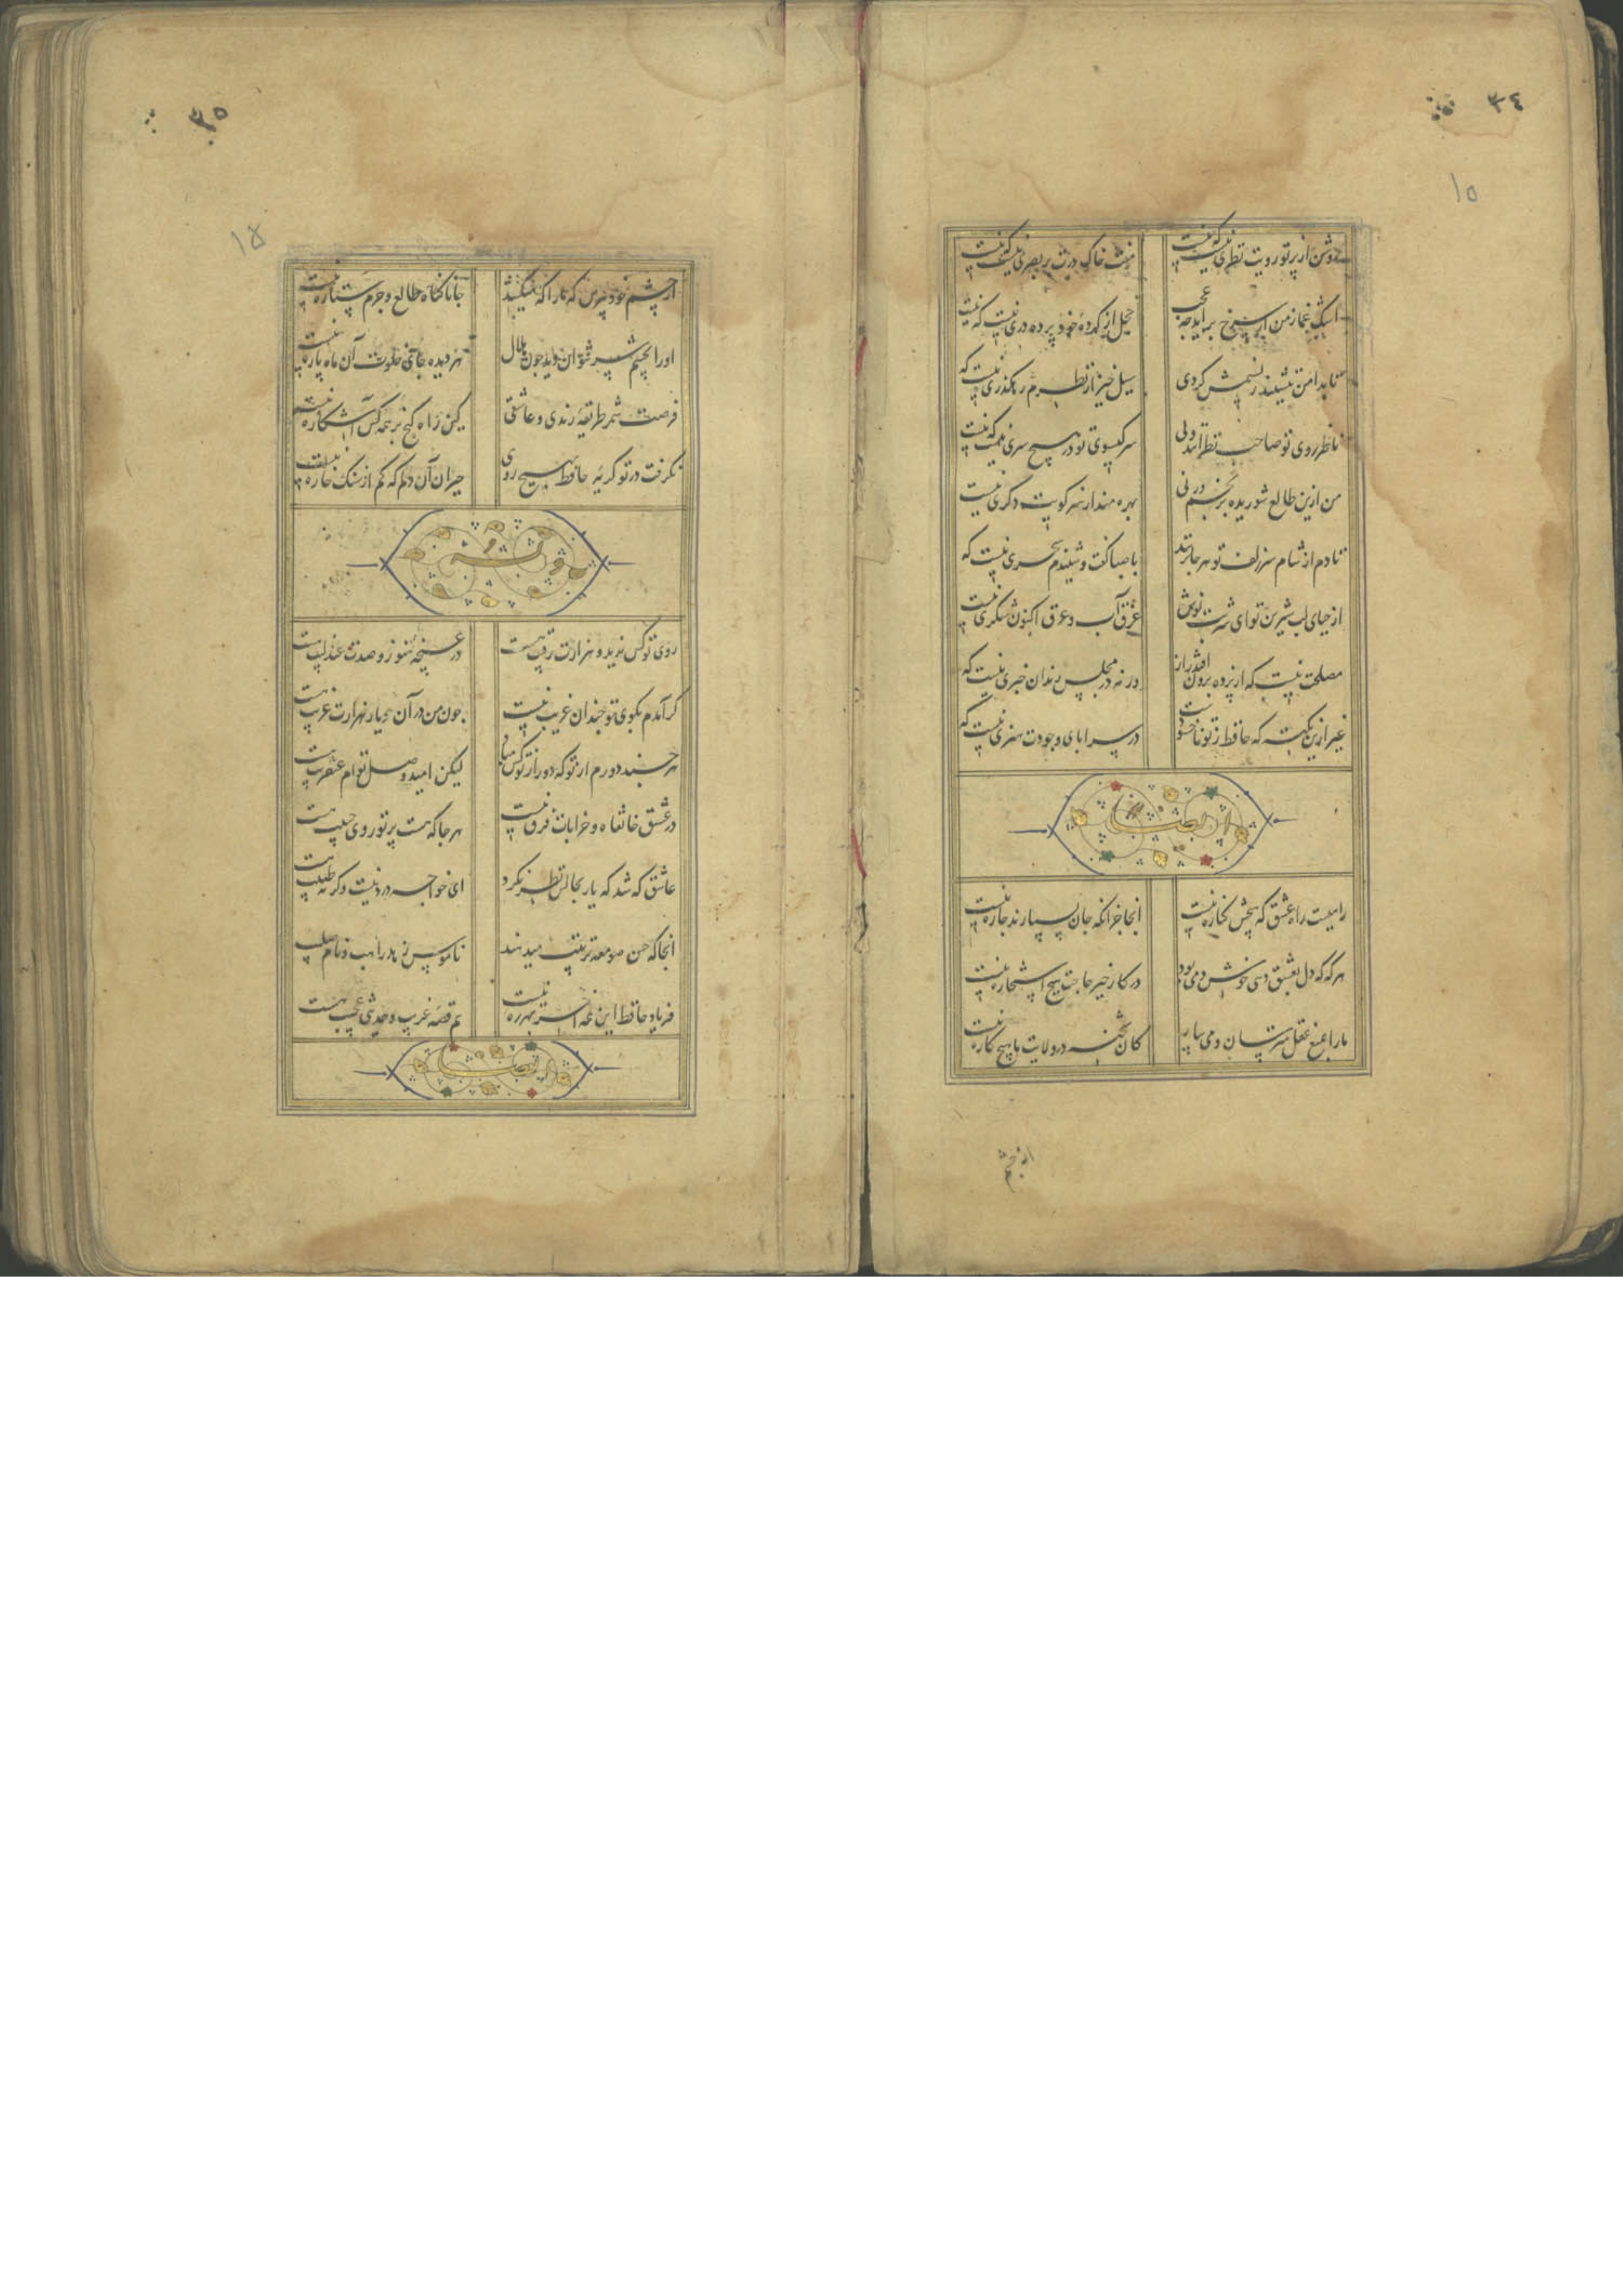 ٣٤
١٥
روشن از پرتو رویت نظری نیست که نیست منت خاک درت بر بصری نیست که نیست
اشک غماز من ار سرخ برآید چه عجب خجل از کرده خود پرده دری نیست که نیست
تا بدامن ننشیند ز نسیمش کردی سیل خیز از نظرم رهکذری نیست که
ناظر روی تو صاحب نظرانند ولی سر کیسوی تو در هیچ سری نیست که نیست
من ازین طالع شوریده برنجم ورنی بهره مند از سر کویت دکری نیست
تا دم از شام سر زلف تو هر جا نزند با صبا کفت و شنیدم سحری نیست که
از حیای لب شیرین تو ای شربت نوش غرق آب و عرق اکنون شکری نیست
مصلحت نیست که از پرده برون افتد راز ورنه در مجلس رندان خبری نیست که
غیر ازین نکته که حافظ ز تو ناخشنودست در سراپای وجودت هنری نیست که
راهیست راه عشق که هیچش کناره نیست انجا جز انکه جان بسپارند چاره نیست
هر که که دل بعشق دهی خوش دمی بود در کار خیر حاجت هیچ استخاره نیست
ما را بمنع عقل مترسان و می بیار کان شحنه در ولایت ما هیچ کاره نیست
از چشم
٣٥
١٥
از چشم خود بپرس که ما را که میکشد جانا کناه طالع و جرم ستاره نیست
او را بچشم شیر توان دید چون هلال هر دیده جای جلوت آن ماه پاره نیست
فرصت شمر طریقه رندی و عاشقی کین راه کنج بر همه کس آشکاره نیست
نکرفت در تو کریه حافظ بهیچ روی حیران آن دلم که کم از سنک خاره نیست
روی تو کس ندید و هزارت رقیب هست در غنچه هنوز و صدت عندلیب هست
کر آمدم بکوی تو چندان غریب نیست چون من در آن دیار هزارت غریب هست
هر چند دورم از تو که دور از تو کس مباد لیکن امید وصل توام عنقریب هست
در عشق خانقاه و خرابات فرق نیست هر جا که هست پرتو روی حبیب هست
عاشق که شد که یار بحالش نظر نکرد ای خواجه درد نیست وکرنه طبیب هست
انجا که حسن صومعه ترتیب میدهند ناموس دیر راهب و نام صلیب
فریاد حافظ این همه اخر بهرزه نیست هم قصه غریب و حدیثی عجیب هست